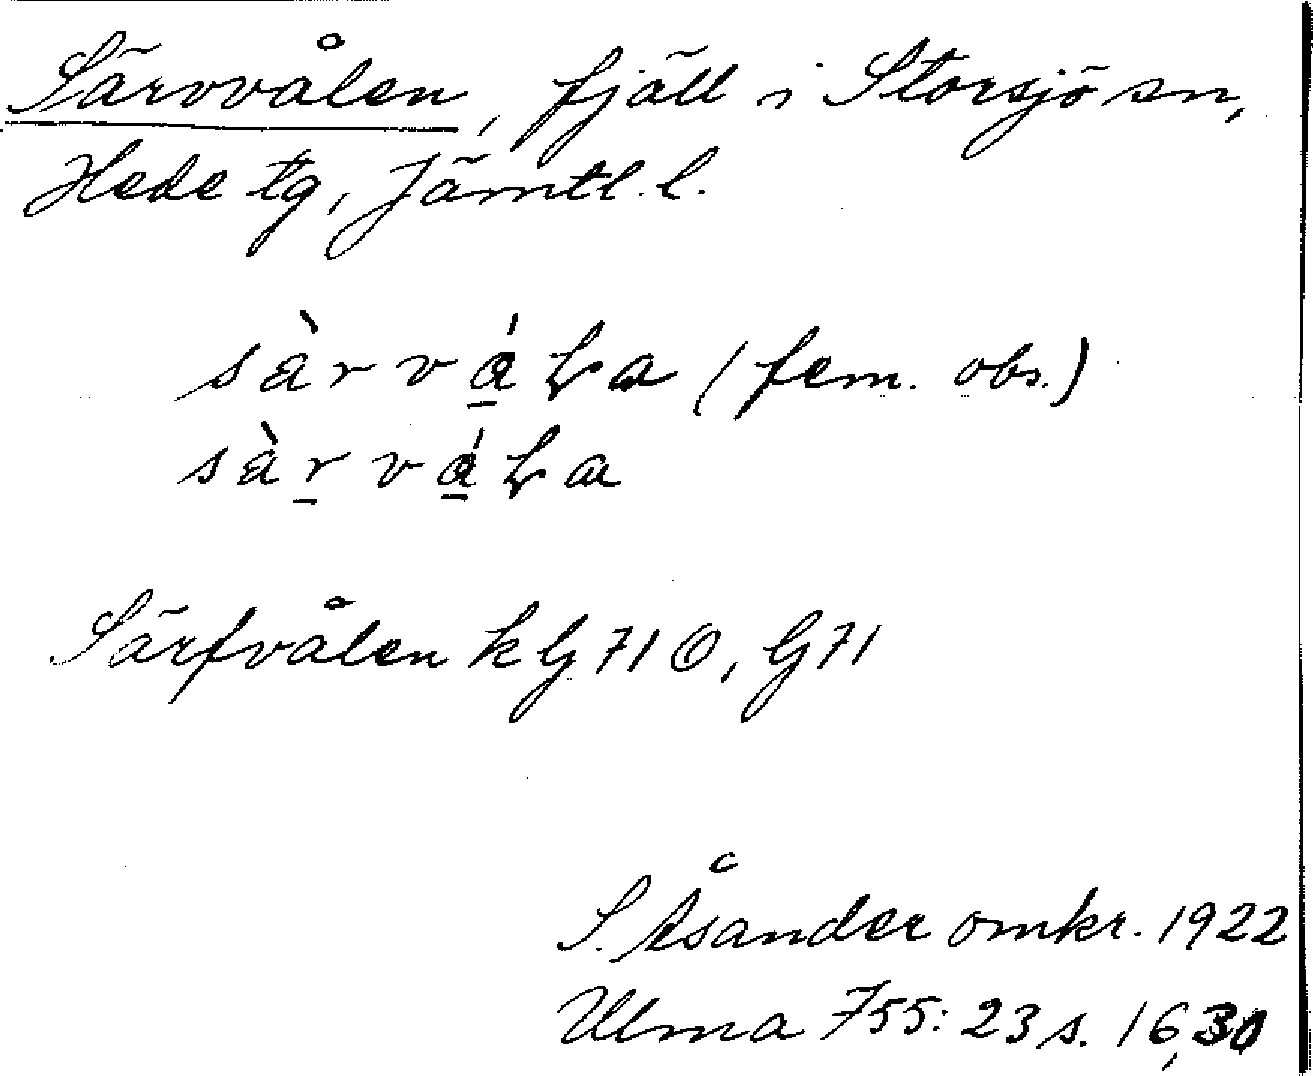 Särvvålen, fjäll i Storsjö sn,
Hede tg, Jämtl. l.
sàrvál̥a (fem. obs.)
sàr̲vál̥a
Särfvålen k G 71 O, G 71
S. Åsander omkr. 1922
Ulma 755: 23 s. 16, 30